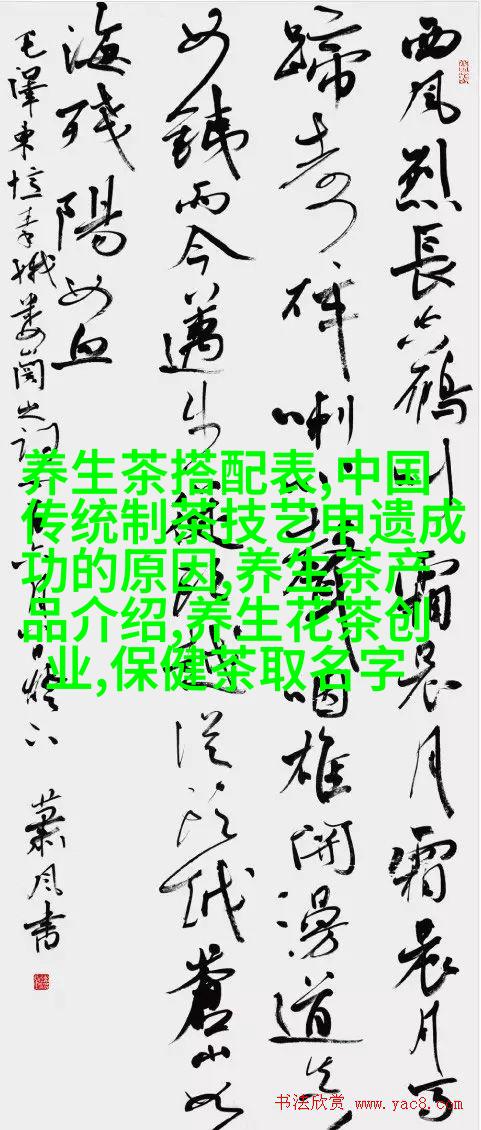 西风烈長空鴈叫霜晨月霜晨月马
蹄声碎喇叭声咽雄関漫道真
如鐵而今邁步從头越從头越蒼山如
海殘陽如血
毛澤東憶秦娥娄山関之詞
蕭风書
养生茶搭配表,中国
传统制茶技艺申遗成
功的原因,养生茶产
品介绍,养生花茶创
业,保健茶取名字
书法欣赏 www.yac8.com